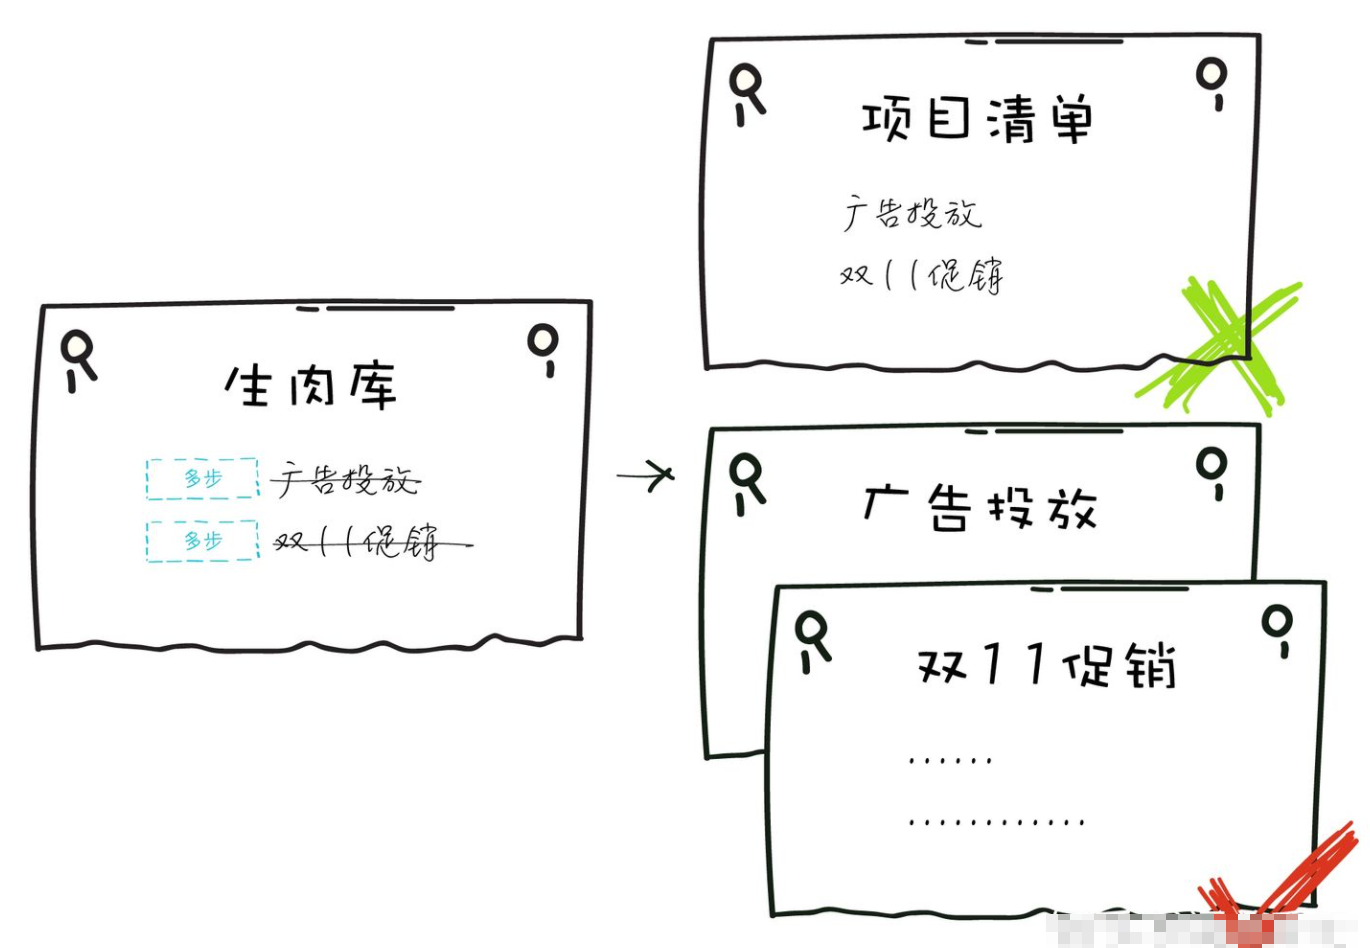 生肉库
多步 广告投放
多步 双11促销
项目清单
广告投放
双11促销
广告投放
双11促销
......
............